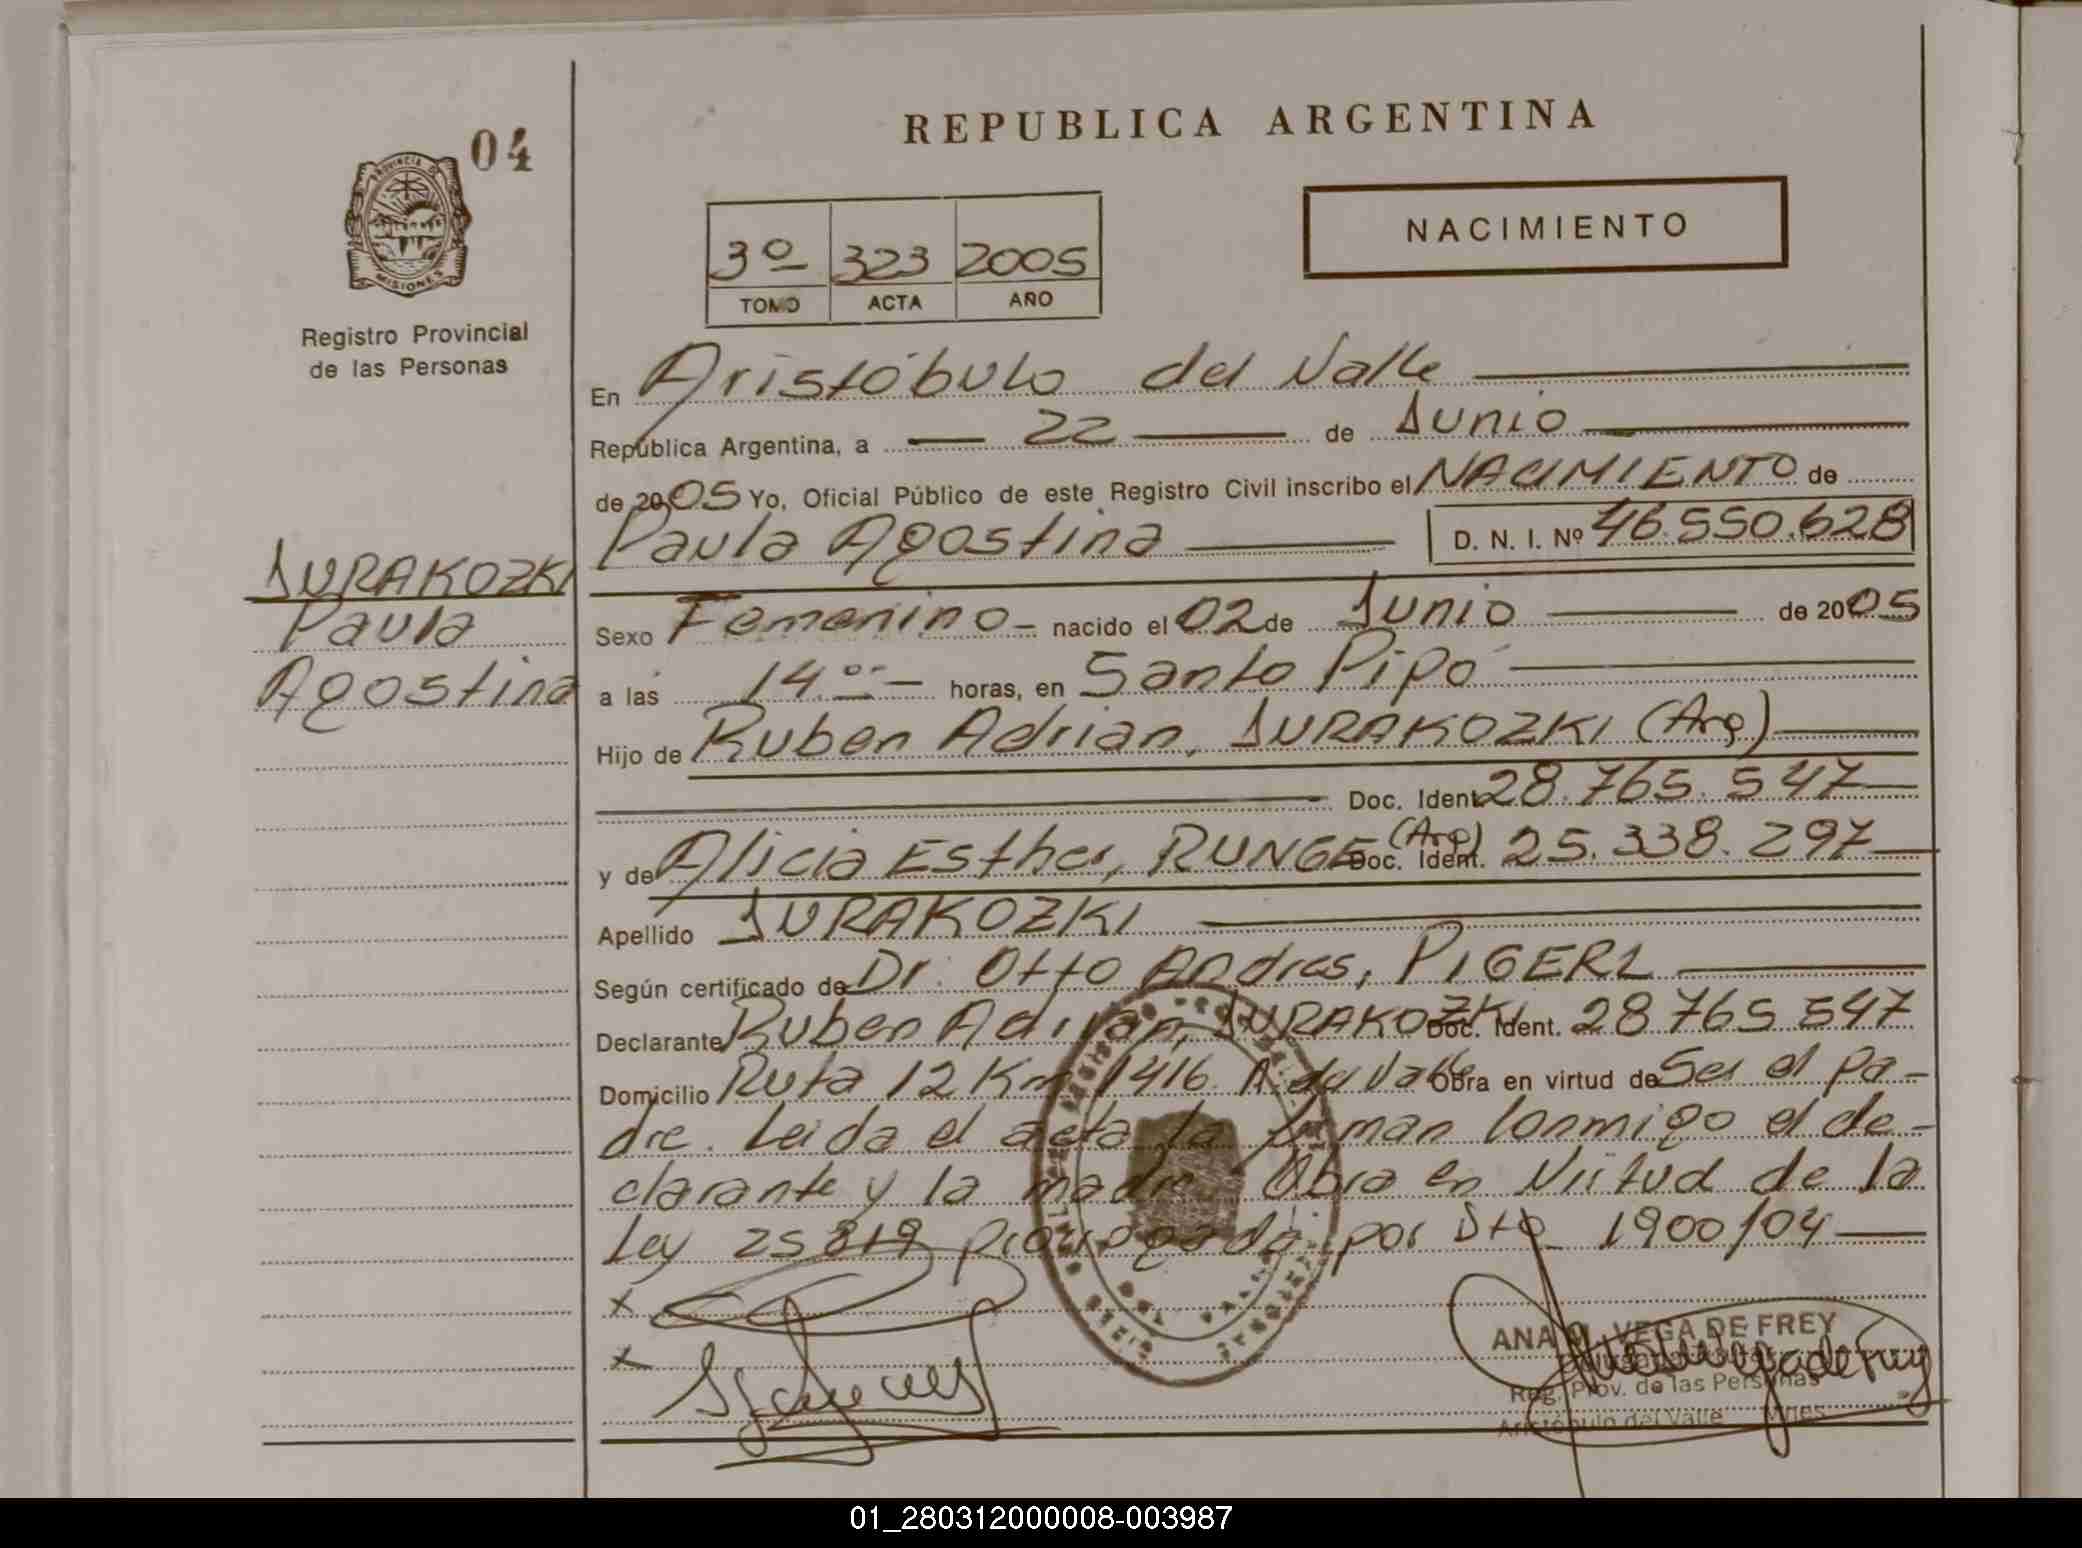 REPUBLICA ARGENTINA
04
PROVINCIA DE
MISIONES
Registro Provincial
de las Personas
NACIMIENTO
3º 323 2005
TOMO ACTA AÑO
En Aristóbulo del Valle
República Argentina, a 22 de Junio
de 2005 Yo, Oficial Público de este Registro Civil inscribo el NACIMIENTO de
Paula Agostina D. N. I. Nº 46.550.628
JURAKOZKI
Paula
Agostina
Sexo Femenino - nacido el 02 de Junio de 2005
a las 14.00 - horas, en Santo Pipó
Hijo de Ruben Adrian, JURAKOZKI (Arg)
Doc. Ident. 28.765.547
y de Alicia Esther, RUNGE (Arg) Doc. Ident. 25.338.297
Apellido JURAKOZKI
Según certificado de Dr. Otto Andres, PIGERL
Declarante Ruben Adrian, JURAKOZKI Doc. Ident. 28765547
Domicilio Ruta 12 Km 1416 A. del Valle Obra en virtud de Ser el pa-
dre. Leida el acta la firman conmigo el de-
clarante y la madre. Obra en Virtud de la
Ley 25819 prorrogada por Dto 1900/04
x
x
ANA VEGA DE FREY
Reg. Prov. de las Personas
Aristóbulo del Valle Mnes
01_280312000008-003987